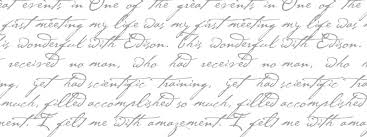 eat events in One of the great events in One of the
y first meeting my life was my first meeting my life wa
is wonderful with Edison. this wonderful with Edison. th
received no man, who had received no man, who
ning, yet had scientific training, yet had scientific tr
much, filled accomplished so much, filled accomplished s
nt. I felt me with amazement. I felt me with ama